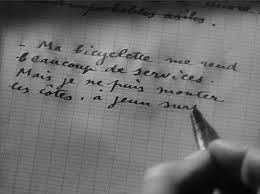 improbables asiles.
- Ma bicyclette me rend
beaucoup de services.
Mais je ne puis monter
les côtes, à jeun sur